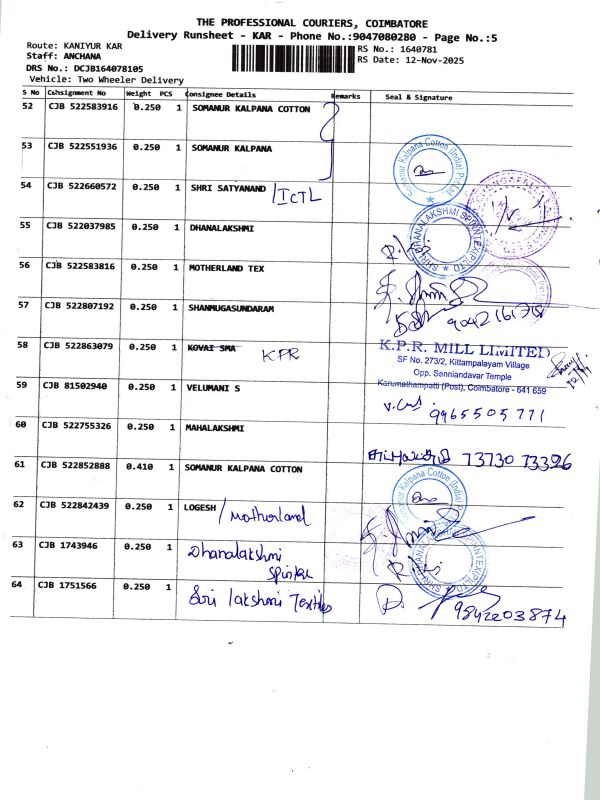 THE PROFESSIONAL COURIERS, COIMBATORE
Delivery Runsheet - KAR - Phone No.:9047080280 - Page No.:5
Route: KANIYUR KAR
Staff: ANCHANA
DRS No.: DCJB164078105
Vehicle: Two Wheeler Delivery
RS No.: 1640781
RS Date: 12-Nov-2025
S No Consignment No Weight PCS Consignee Details Remarks Seal & Signature
52 CJB 522583916 0.250 1 SOMANUR KALPANA COTTON
53 CJB 522551936 0.250 1 SOMANUR KALPANA
Somanur Kalpana Cotton (India) Pvt Ltd
54 CJB 522660572 0.250 1 SHRI SATYANAND /ICTL
55 CJB 522037985 0.250 1 DHANALAKSHMI
SHRI DHANALAKSHMI SPINTEX (P) LTD
56 CJB 522583816 0.250 1 MOTHERLAND TEX
57 CJB 522807192 0.250 1 SHANMUGASUNDARAM
58 CJB 522863079 0.250 1 KOVAI SMA KPR
K.P.R. MILL LIMITED
SF No. 273/2, Kittampalayam Village
Opp. Senniandavar Temple
Karumathampatti (Post), Coimbatore - 641 659
59 CJB 81502940 0.250 1 VELUMANI S
9965505771
60 CJB 522755326 0.250 1 MAHALAKSHMI
73730 73326
61 CJB 522852888 0.410 1 SOMANUR KALPANA COTTON
62 CJB 522842439 0.250 1 LOGESH / Motherland
63 CJB 1743946 0.250 1 Dhanalakshmi
64 CJB 1751566 0.250 1 Sri lakshmi Textiles
9842203874